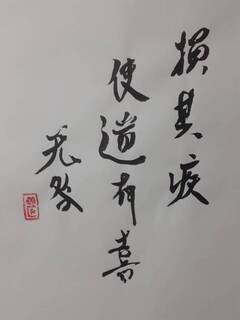 損其疾
使遄有喜
无咎